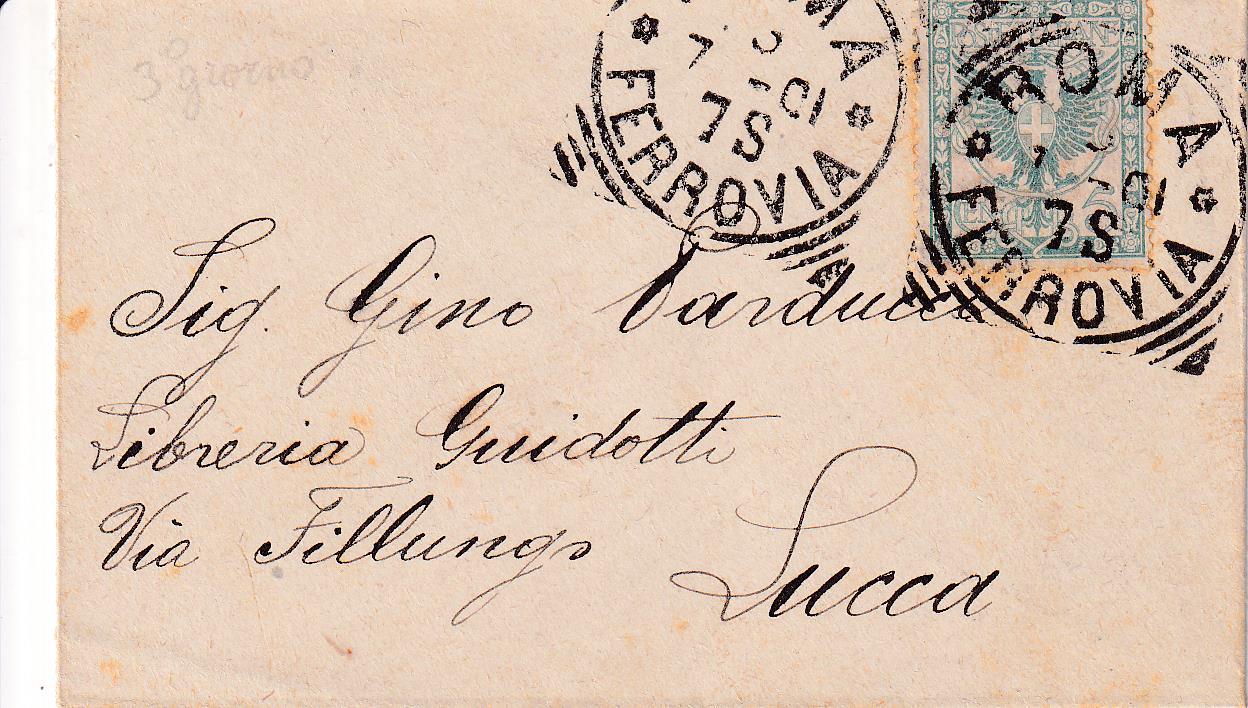 3º giorno
ROMA
7 01
7S
FERROVIA
POSTE ITALIANE
CENT. 5
ROMA
7 01
7S
FERROVIA
Sig. Gino Carducci
Libreria Guidotti
Via Fillungo
Lucca